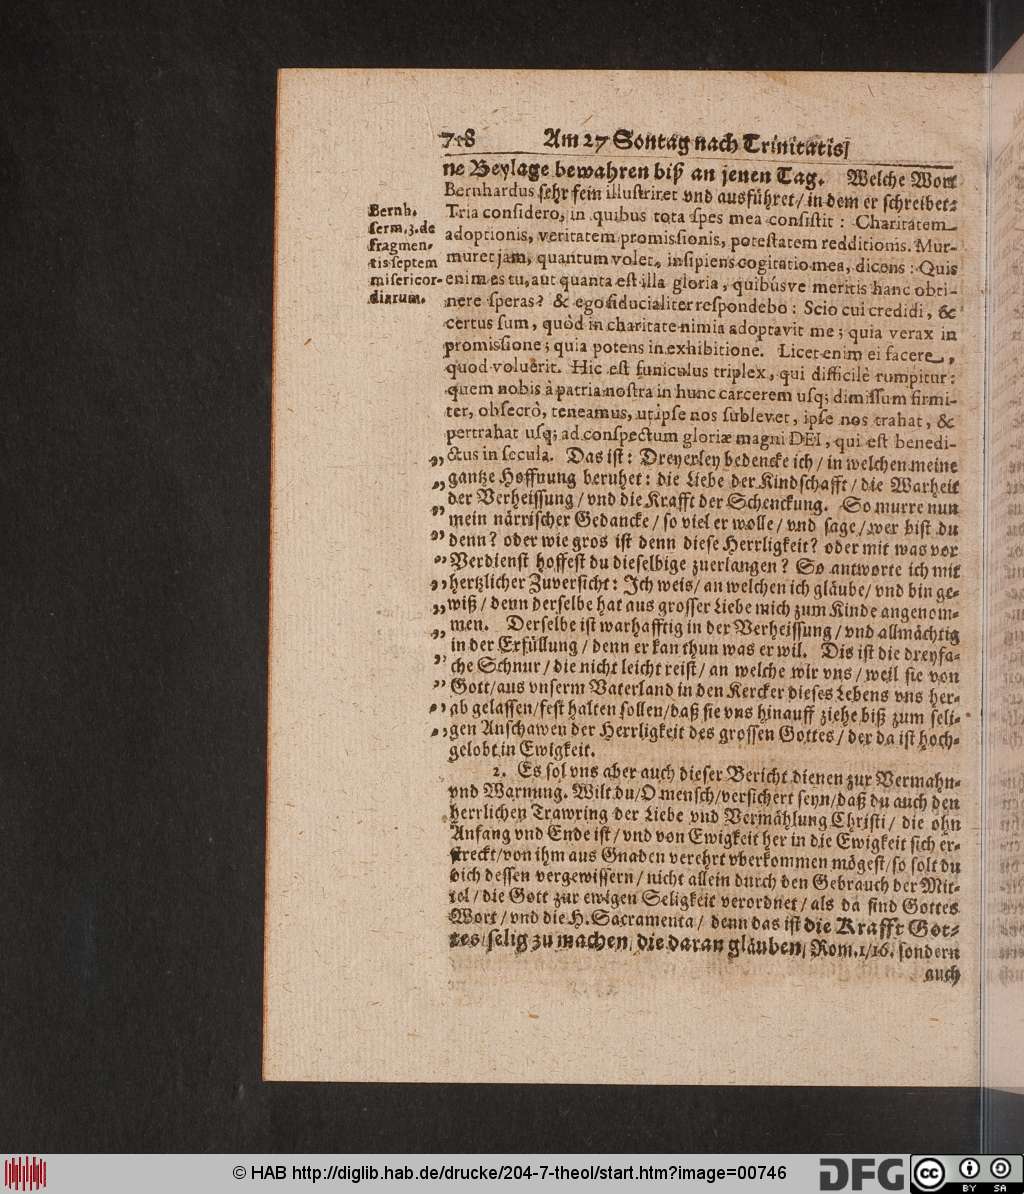 718 Am 27 Sontag nach Trinitatis/
ne Beylage bewahren biß an jenen Tag. Welche Wort
Bernhardus sehr fein illustriret vnd ausführet/ in dem er schreibet:
Tria considero, in quibus tota spes mea consistit: Charitatem
adoptionis, veritatem promissionis, potestatem redditionis. Mur-
muret jam, quantum volet, insipiens cogitatio mea, dicens: Quis
enim es tu, aut quanta est illa gloria, quibúsve meritis hanc obti-
nere speras? & ego fiducialiter respondebo: Scio cui credidi, &
certus sum, quòd in charitate nimia adoptavit me; quia verax in
promissione; quia potens in exhibitione. Licet enim ei facere,
quod voluerit. Hic est funiculus triplex, qui difficilè rumpitur:
quem nobis à patria nostra in hunc carcerem usq; dimissum firmi-
ter, obsecrò, teneamus, ut ipse nos sublevet, ipse nos trahat, &
pertrahat usq; ad conspectum gloriæ magni DEI, qui est benedi-
ctus in secula. Das ist: Dreyerley bedencke ich/ in welchen meine
gantze Hoffnung beruhet: die Liebe der Kindschafft/ die Warheit
der Verheissung/ vnd die Krafft der Schenckung. So murre nun
mein närrischer Gedancke/ so viel er wolle/ vnd sage/ wer bist du
denn? oder wie gros ist denn diese Herrligkeit? oder mit was vor
Verdienst hoffest du dieselbige zuerlangen? So antworte ich mit
hertzlicher Zuversicht: Ich weis/ an welchen ich gläube/ vnd bin ge-
wiß/ denn derselbe hat aus grosser Liebe mich zum Kinde angenom-
men. Derselbe ist warhafftig in der Verheissung/ vnd allmächtig
in der Erfüllung/ denn er kan thun was er wil. Dis ist die dreyfa-
che Schnur/ die nicht leicht reist/ an welche wir vns/ weil sie von
Gott/ aus vnserm Vaterland in den Kercker dieses Lebens vns her-
ab gelassen/ fest halten sollen/ daß sie vns hinauff ziehe biß zum seli-
gen Anschawen der Herrligkeit des grossen Gottes/ der da ist hoch-
gelobt in Ewigkeit.
2. Es sol vns aber auch dieser Bericht dienen zur Vermahn-
vnd Warnung. Wilt du/ O mensch/ versichert seyn/ daß du auch den
herrlichen Trawring der Liebe vnd Vermählung Christi/ die ohn
Anfang vnd Ende ist/ vnd von Ewigkeit her in die Ewigkeit sich er-
streckt/ von ihm aus Gnaden verehrt vberkommen mögest/ so solt du
dich dessen vergewissern/ nicht allein durch den Gebrauch der Mit-
tel/ die Gott zur ewigen Seligkeit verordnet/ als da sind Gottes
Wort/ vnd die H. Sacramenta/ denn das ist die Krafft Got-
tes/ selig zu machen/ die daran gläuben/ Rom. 1/16. sondern
auch
Bernh.
serm. 3. de
fragmen-
tis septem
misericor-
diarum.
© HAB http://diglib.hab.de/drucke/204-7-theol/start.htm?image=00746
DFG
cc BY SA